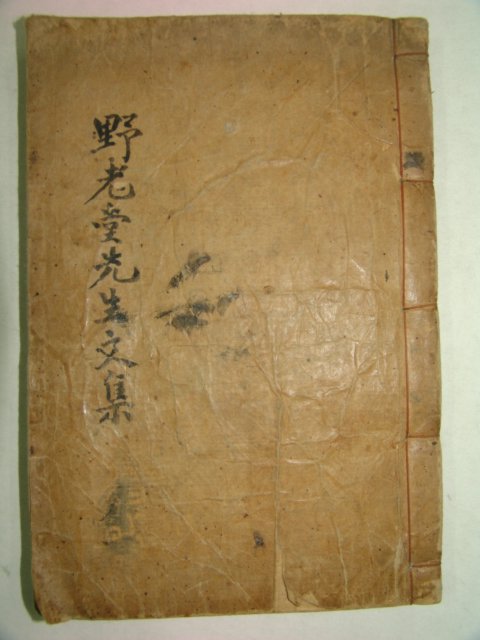 野老堂先生文集